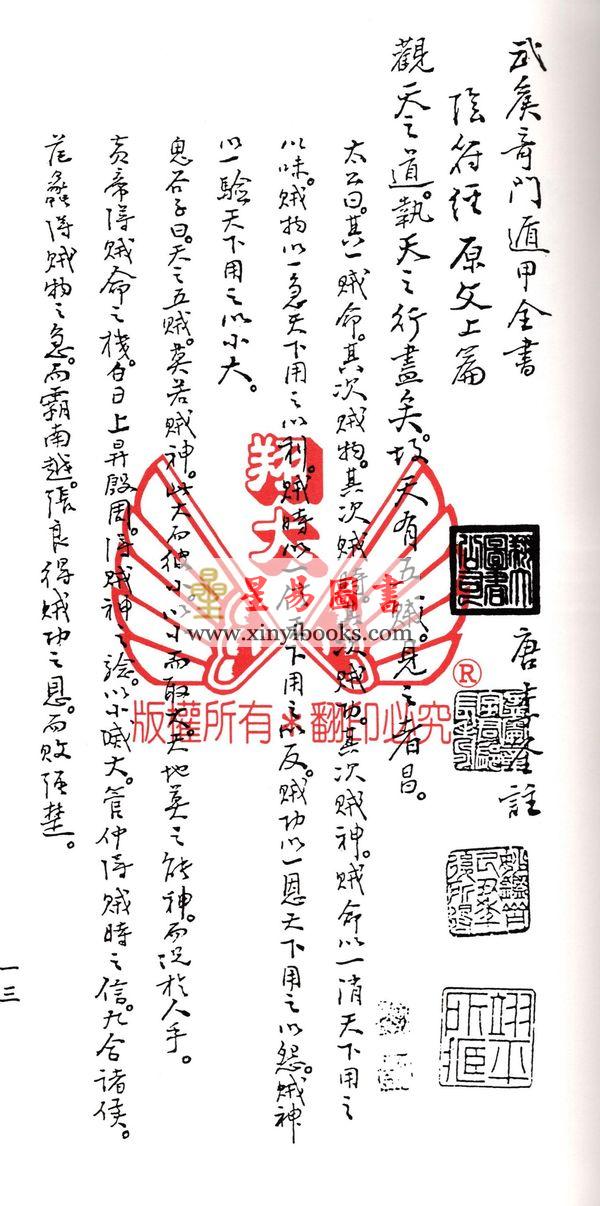 武矦奇門遁甲全書
陰符經原文上篇
唐李筌註
觀天之道。執天之行盡矣。故天有五賊。見之者昌。
太公曰。其一賊命。其次賊物。其次賊時。其次賊功。其次賊神。賊命以一消天下用之
以味。賊物以一急天下用之以利。賊時以一信天下用之以反。賊功以一恩天下用之以怨。賊神
以一驗天下用之以小大。
鬼谷子曰。天之五賊。莫若賊神。此大而彼小以小而取大。天地莫之能神。而況於人乎。
黃帝得賊命之機。白日上昇殷周。得賊神之驗。以小滅大。管仲得賊時之信。九合諸侯。
范蠡得賊物之急。而霸南越。張良得賊功之恩。而敗强楚。
一三
翔大
星僑圖書
www.xinyibooks.com
®
版權所有*翻印必究